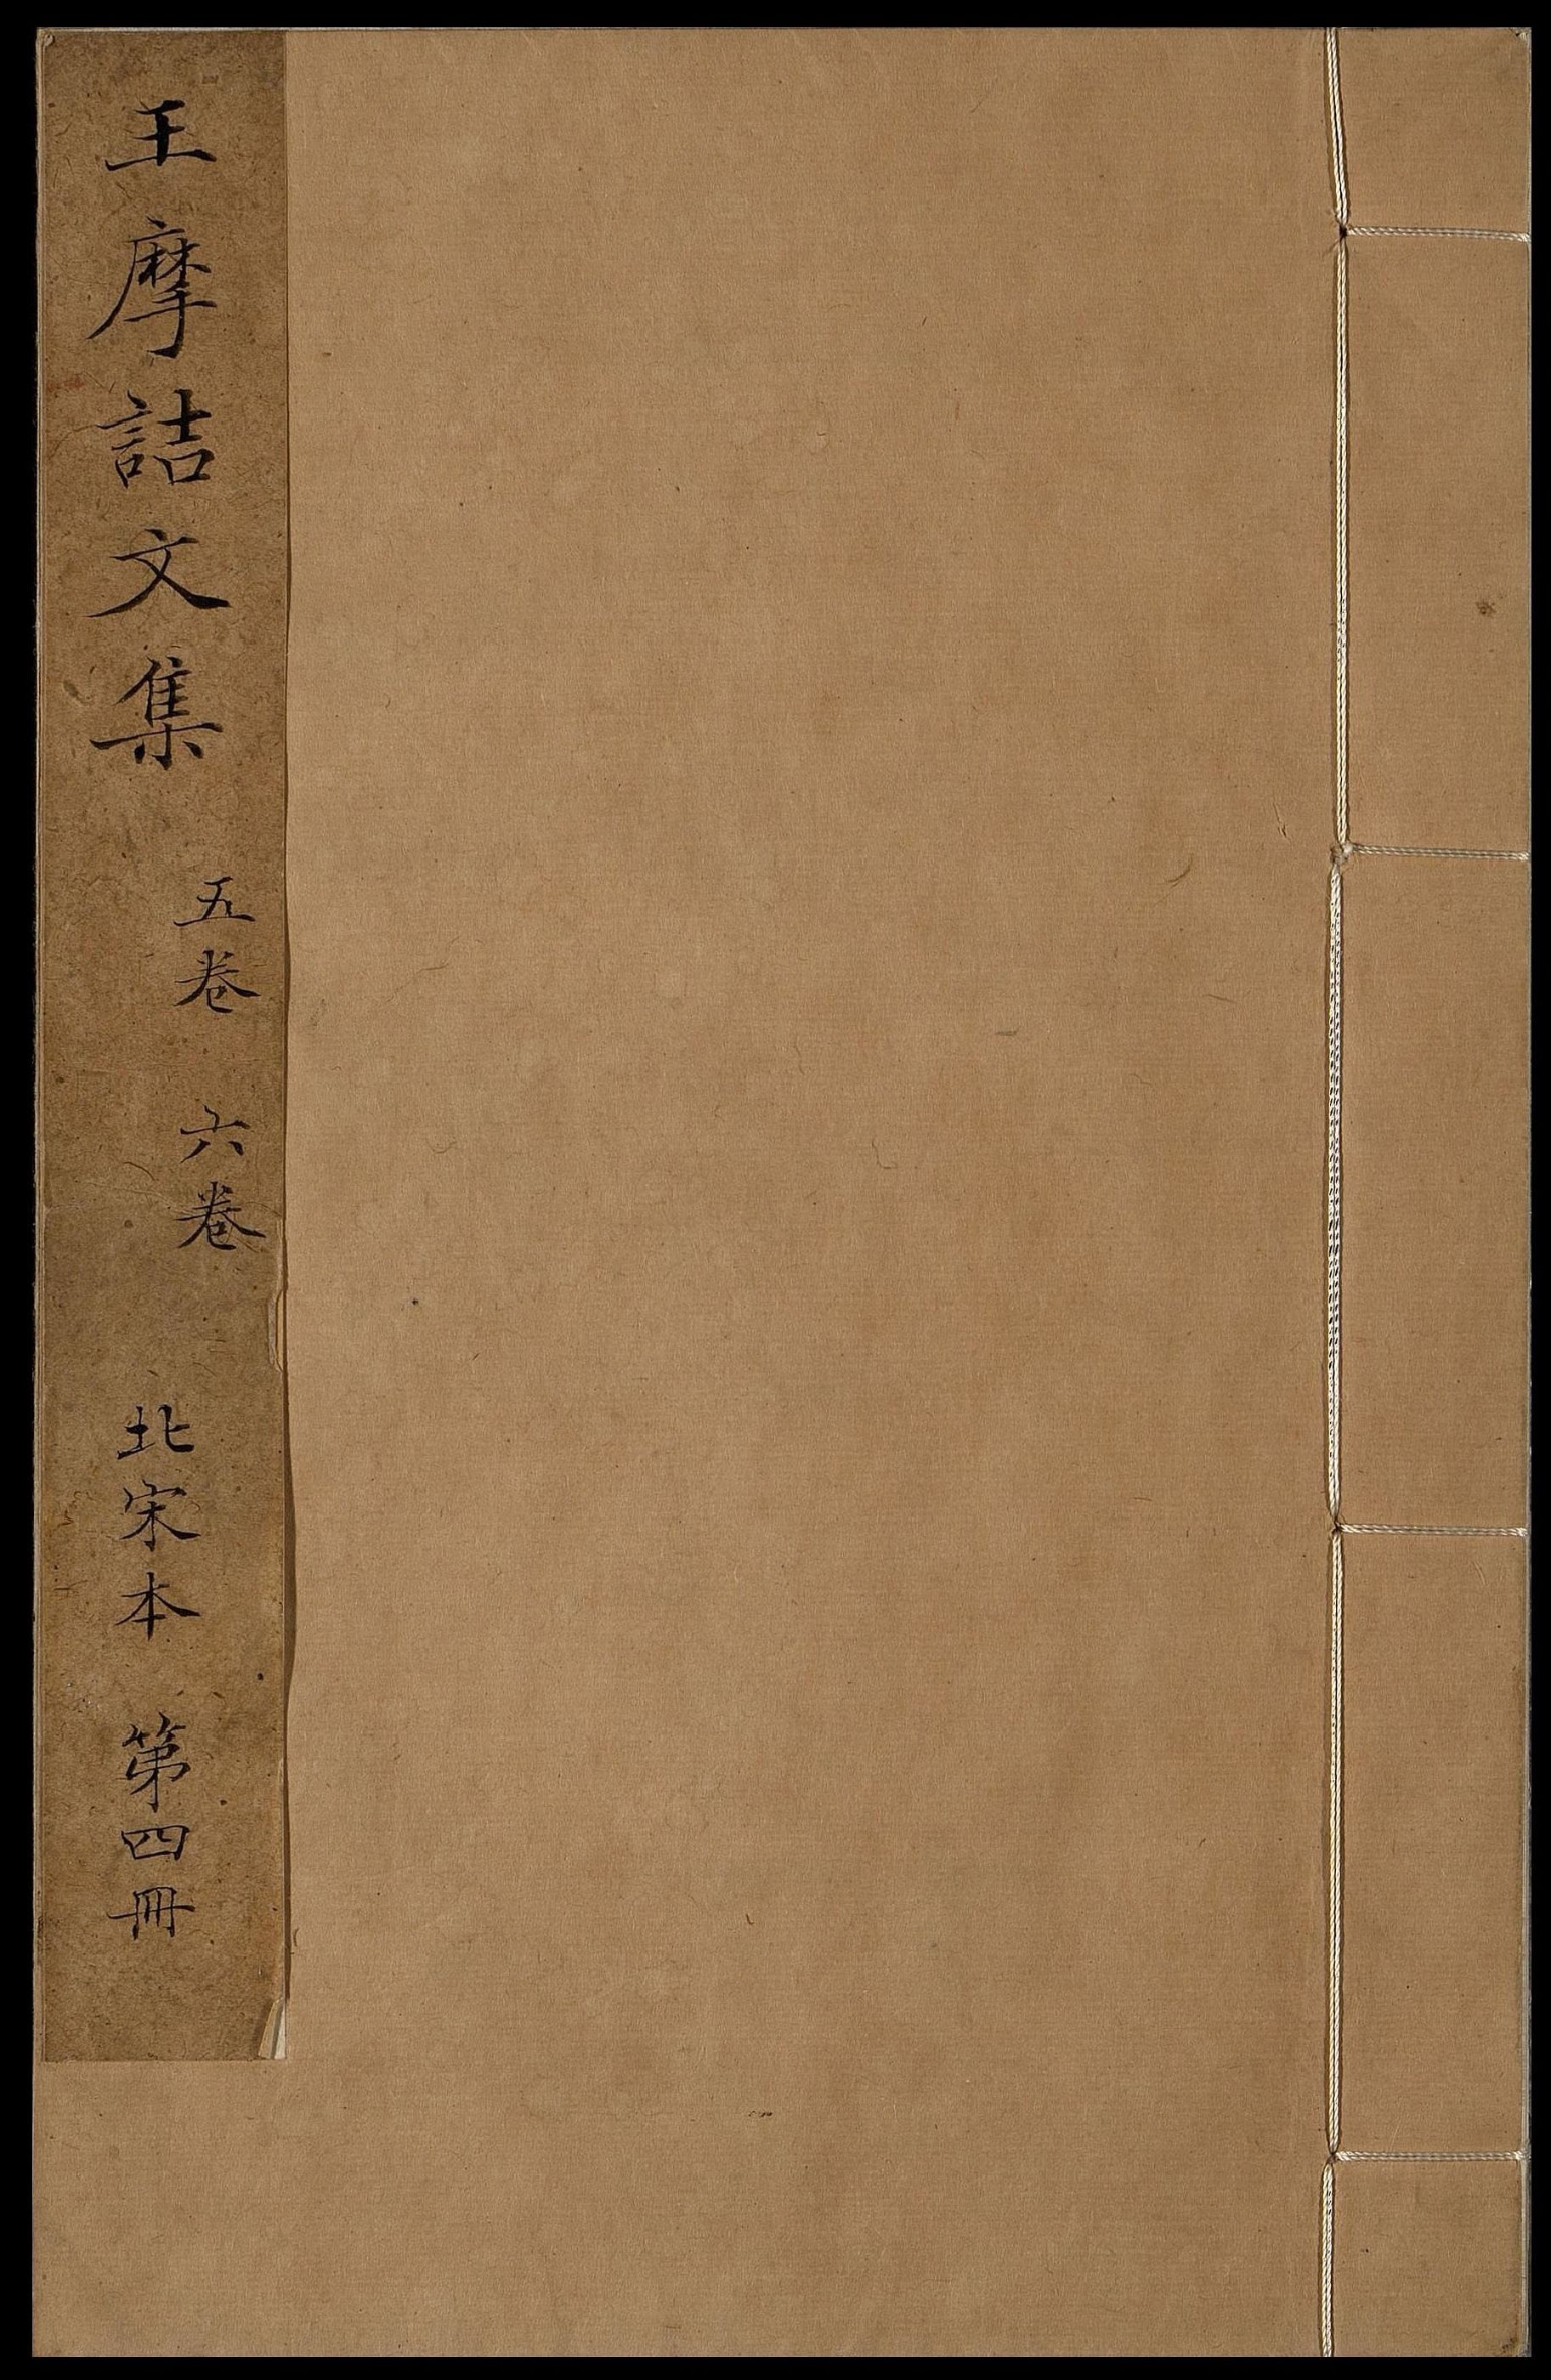 王摩詰文集
五卷 六卷
北宋本 第四冊